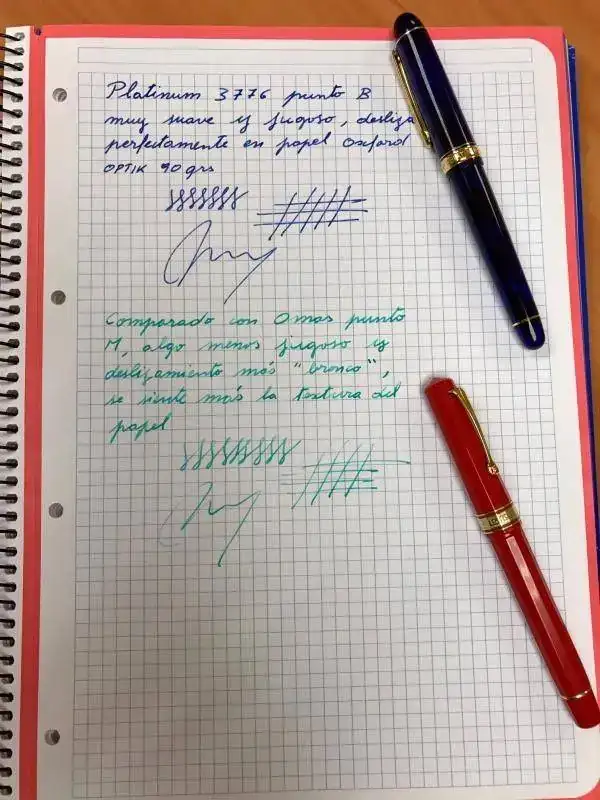 Platinum 3776 punto B
muy suave y jugoso, desliza
perfectamente en papel Oxford
OPTIK 90 grs
Comparado con Omas punto
M, algo menos jugoso y
deslizamiento más "bronco",
se siente más la textura del
papel